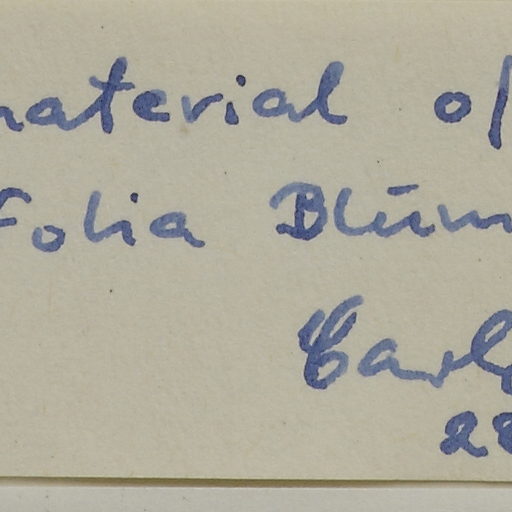 material of
folia Blum
Carl
22